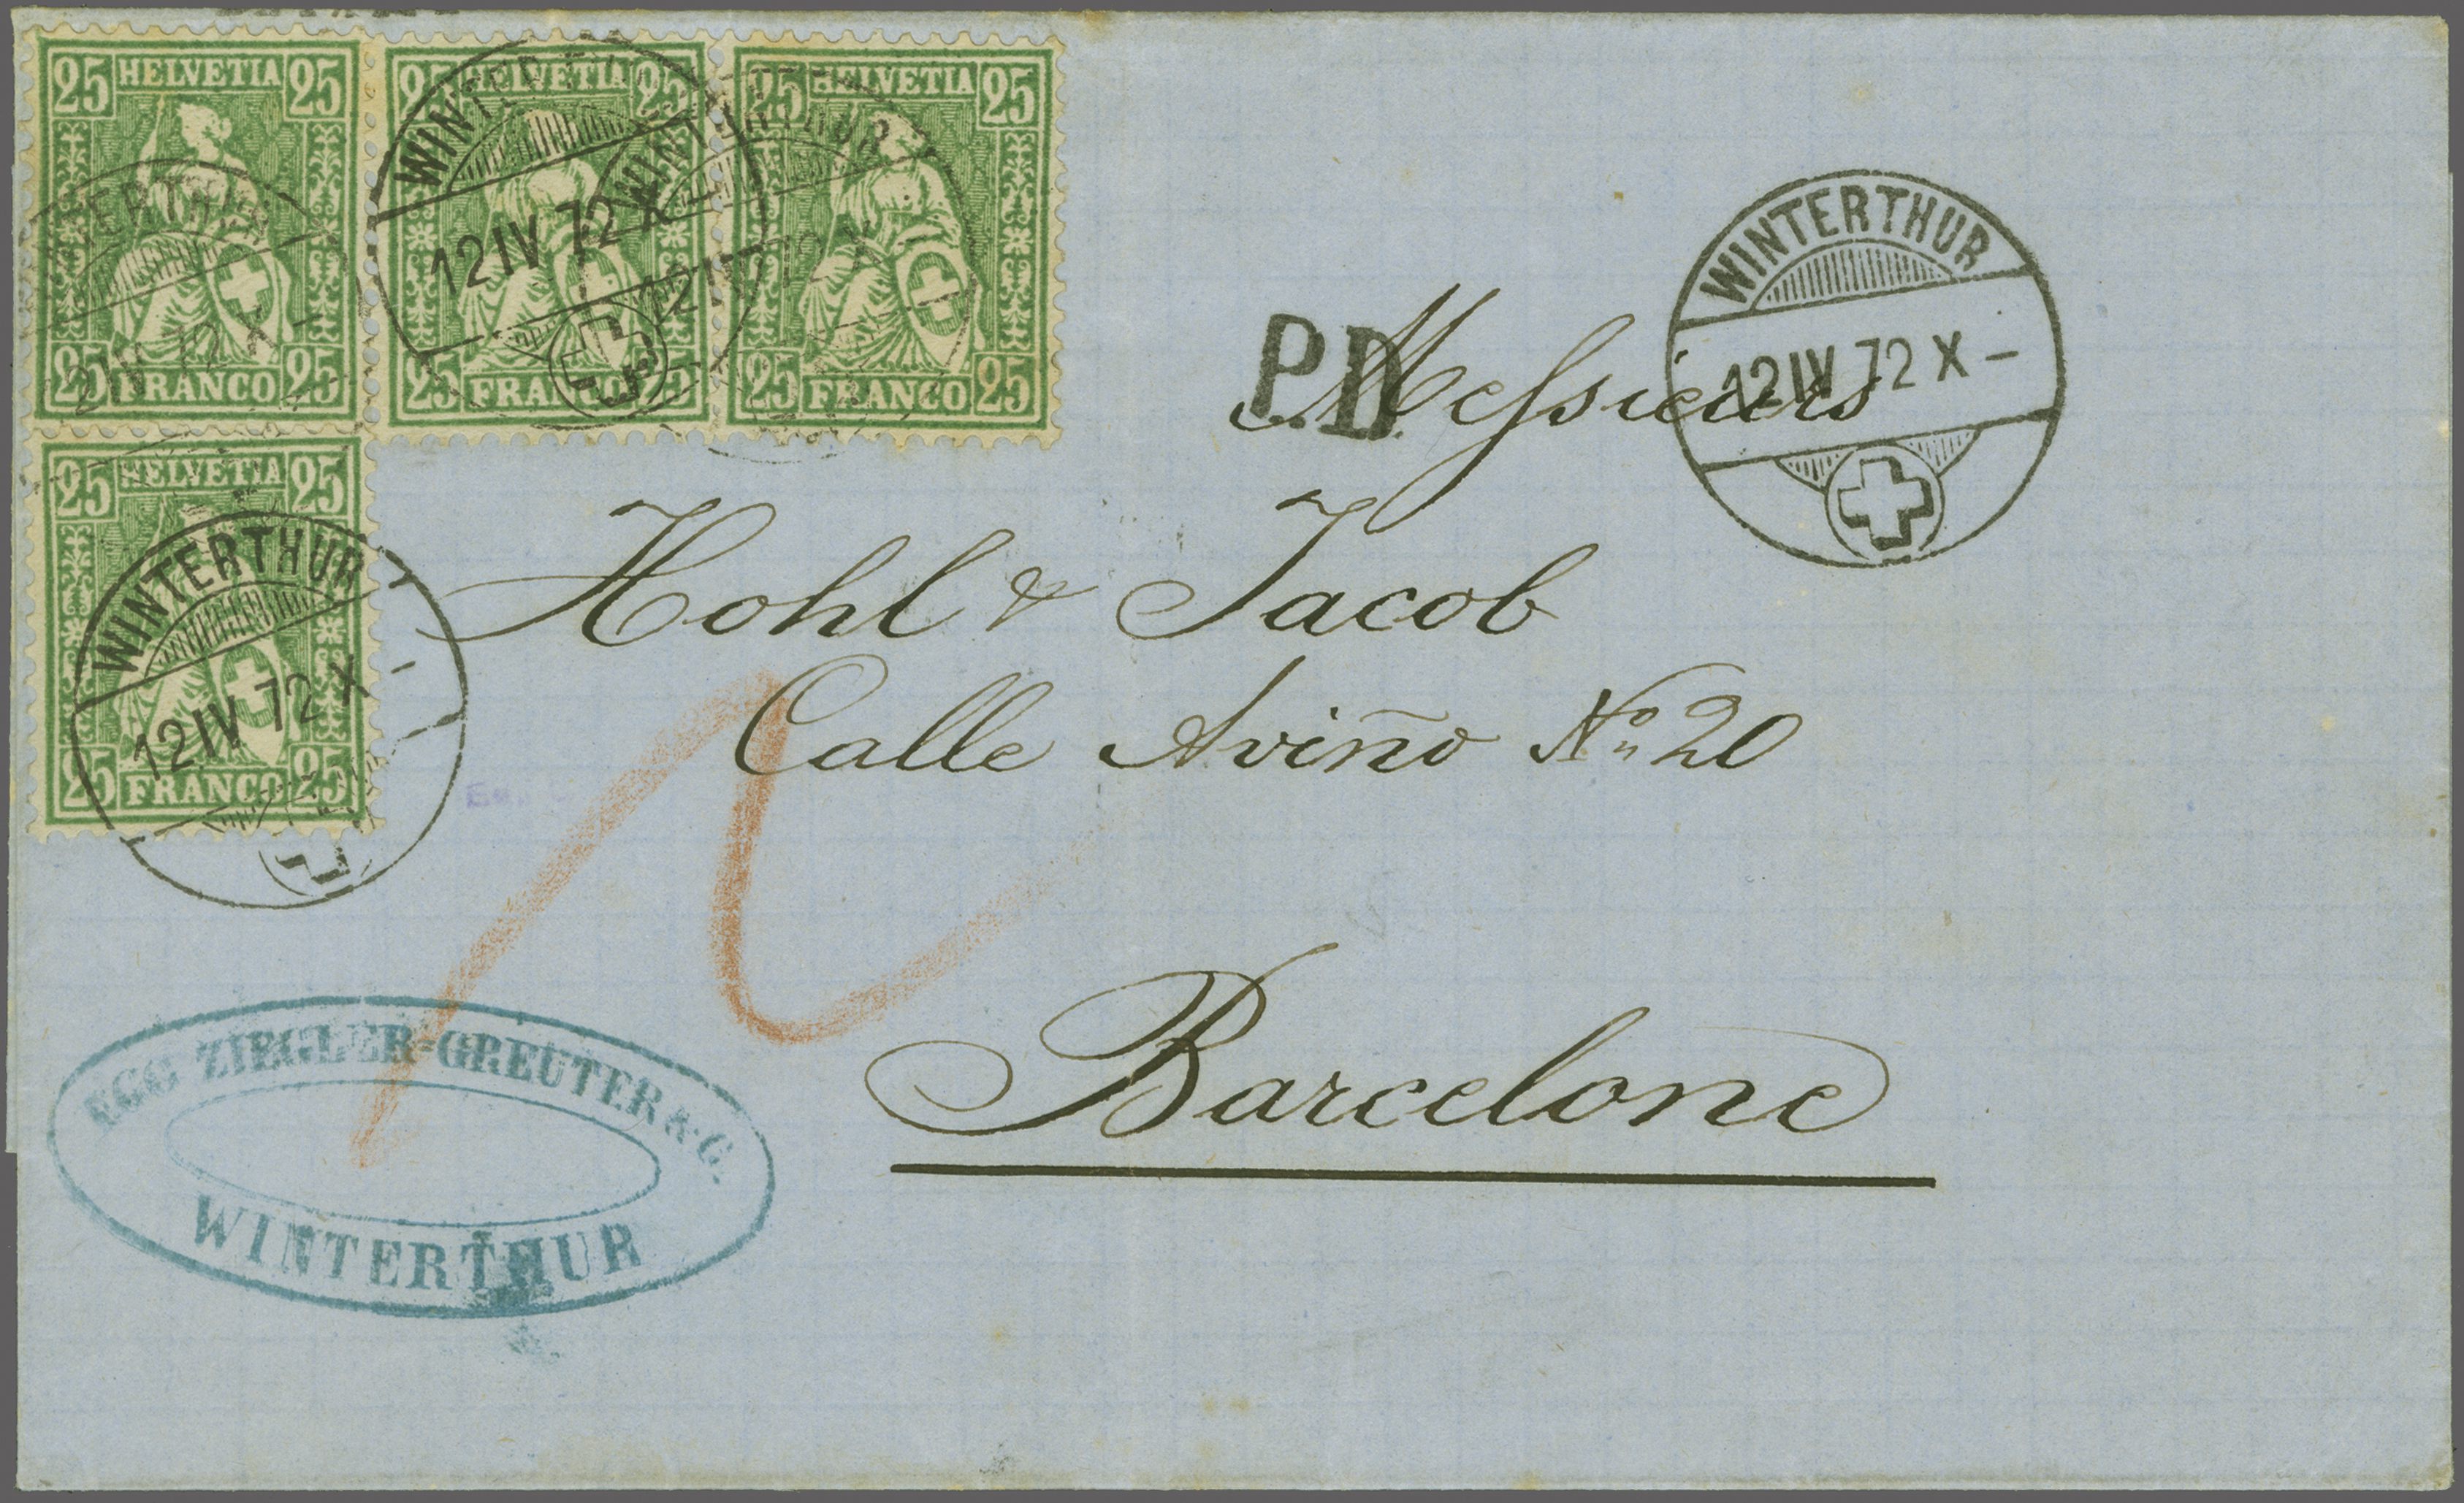 25 HELVETIA 25
25 FRANCO 25
25 HELVETIA 25
25 FRANCO 25
25 HELVETIA 25
25 FRANCO 25
25 HELVETIA 25
25 FRANCO 25
WINTERTHUR
12 IV 72 X –
WINTERTHUR
12 IV 72 X –
WINTERTHUR
12 IV 72 X –
WINTERTHUR
12 IV 72 X –
WINTERTHUR
12 IV 72 X –
P.D.
Messieurs
Hohl & Jacob
Calle Aviño No 20
Barcelone
EGG ZIEGLER-GREUTER & C.
WINTERTHUR